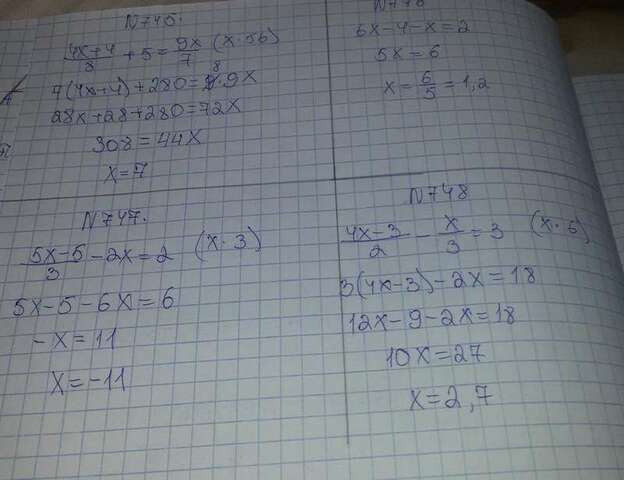 N745.
(4x+4)/8 + 5 = 9x/7 (x·56)
7(4x+4)+280=8·9x
28x+28+280=72x
308=44x
x=7
6x-4-x=2
5x=6
x=6/5=1,2
N747.
(5x-5)/3 - 2x=2 (x·3)
5x-5-6x=6
-x=11
x=-11
N748
(4x-3)/2 - x/3 = 3 (x·6)
3(4x-3)-2x=18
12x-9-2x=18
10x=27
x=2,7